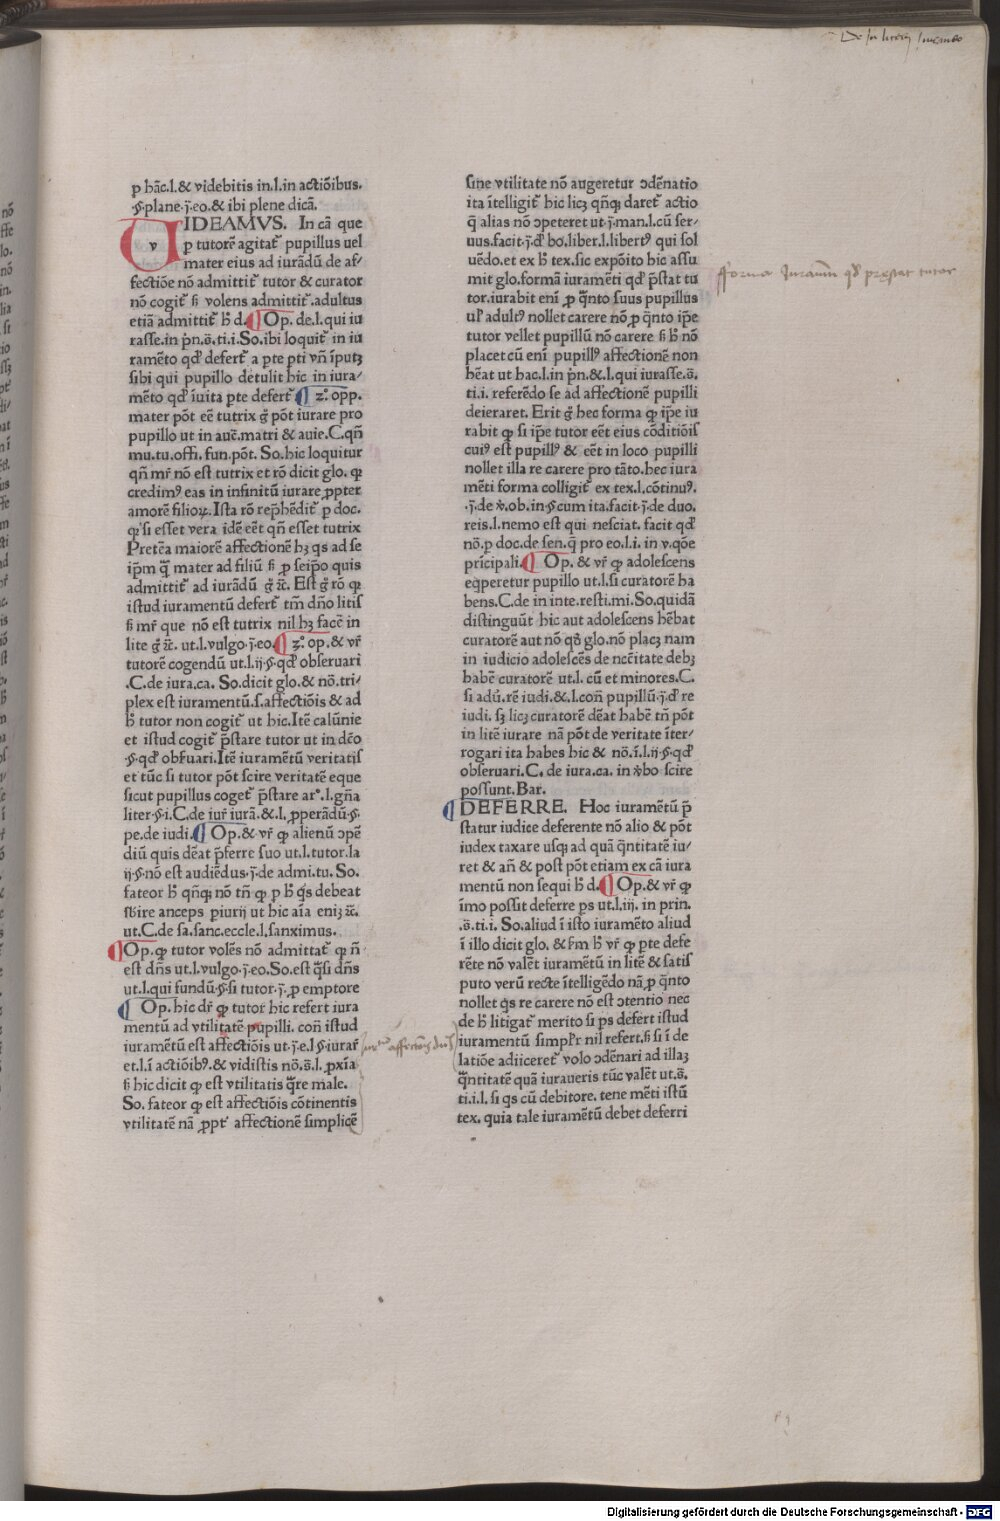 De in litem iurando
p hāc.l.& videbitis in.l.in actiōibus.
.§.plane.j̄.eo.& ibi plene dicā.
VIDEAMVS. In cā que
p tutorē agitat᷑ pupillus uel
mater eius ad iurādū de af/
fectiōe nō admittit᷑ tutor & curator
nō cogit᷑ ẜ volens admittit᷑.adultus
etiā admittit᷑ h̄ d. Op. de.l.qui iu
rasse.in p̄n.s̄.ti.i.So.ibi loquit᷑ in iu
ramēto qd̓ defert᷑ a pte pti vn̄ īputꝫ
sibi qui pupillo detulit hic in iura/
mēto qd̓ īuita pte defert᷑ 2°. opp.
mater pōt eē tutrix g̊ pōt iurare pro
pupillo ut in auc̄.matri & auie.C.qn̄
mu.tu.offi. fun.pōt. So.hic loquitur
qn̄ mr̄ nō est tutrix et rō dicit glo. ꝙ
credimꝰ eas in infinitū iurare ꝓpter
amorē filioꝝ. Ista rō rep̄hēdit᷑ p doc.
ꝙ si esset vera idē eēt qn̄ esset tutrix
Pretēa maiorē affectionē hꝫ qs ad se
ip̄m q̄ mater ad filiū ẜ ꝓ seip̄o quis
admittit᷑ ad iurādū g̊ ⁊c̄. Est g̊ rō ꝙ
istud iuramentū defert᷑ tm̄ dn̄o litis
ẜ mr̄ que nō est tutrix nil hꝫ facē in
lite g̊ ⁊c̄. ut.l.vulgo.j̄.eo. 3°. op.& vr̄
tutorē cogendū ut.l.ij.§.qd̓ obseruari
.C.de iura.ca. So.dicit glo.& nō.tri/
plex est iuramentū.s.affectiōis & ad
h̄ tutor non cogit᷑ ut hic.Itē calūnie
et istud cogit᷑ p̄stare tutor ut in dc̄o
.§.qd̓ obẜuari.Itē iuramētū veritatis
et tūc si tutor pōt scire veritatē eque
sicut pupillus coget᷑ p̄stare ar°.l.gn̄a
liter.§.i.C.de iur̄ iurā.&.l.ꝓperādū.§.
pe.de iudi. Op.& vr̄ ꝙ alienū ɔpē
diū quis dēat p̄ferre suo ut.l.tutor.la
ij.§.nō est audiēdus.j̄.de admi.tu. So.
fateor h̄ qn̄qꝫ nō tn̄ ꝙ p h̄ q̇s debeat
sbire anceps piurij ut hic aīa eniꝫ ⁊c̄.
ut.C.de sa.sanc.eccle.l.sanximus.
Op.ꝙ tutor volēs nō admittat᷑ ꝙ n̄
est dn̄s ut.l.vulgo.j̄.eo.So.est q̄si dn̄s
ut.l.qui fundū.§.si tutor.j̄.ꝓ emptore
Op.hic dr̄ ꝙ tutor hic refert iura
mentū ad vtilitatē pupilli. con̄ istud
iuramētū est affectiōis ut.j̄.e.l.§.iurar̄
et.l.ī actiōibꝰ.& vidistis nō.s̄.l.ꝓxīa
ẜ hic dicit ꝙ est vtilitatis q̄re male.
So. fateor ꝙ est affectiōis cōtinentis
vtilitatē nā ꝓpt᷑ affectionē simplicē
sine vtilitate nō augeretur ɔdēnatio
ita ītelligit᷑ hic licꝫ qn̄qꝫ daret᷑ actio
q̄ alias nō ɔpeteret ut.j̄.man.l.cū ser/
uus.facit.j̄.d̓ bo.liber.l.libertꝰ qui sol
uēdo.et ex h̄ tex.sic expōito hic assu
mit glo.formā iuramēti qd̓ p̄stat tu
tor.iurabit enī ꝓ q̄nto suus pupillus
ul̓ adultꝰ nollet carere nō ꝓ q̄nto ip̄e
tutor vellet pupillū nō carere ẜ h̄ nō
placet cū enī pupillꝰ affectionē non
hēat ut hac.l.in p̄n.&.l.qui iurasse.s̄.
ti.i. referēdo se ad affectionē pupilli
deieraret. Erit g̊ hec forma ꝙ ip̄e iu
rabit ꝙ si ip̄e tutor eēt eius cōditiōis
cuiꝰ est pupillꝰ & eēt in loco pupilli
nollet illa re carere pro tāto.hec iura
mēti forma colligit᷑ ex tex.l.cōtinuꝰ.
.j̄.de v̇.ob.in.§.cum ita.facit.j̄.de duo.
reis.l.nemo est qui nesciat. facit qd̓
nō.p doc.de sen.q̄ pro eo.l.i. in v.qōe
prīcipali. Op. & vr̄ ꝙ adolescens
eq̇peretur pupillo ut.l.si curatorē ha
bens.C.de in inte.resti.mi.So.quidā
distinguūt hic aut adolescens hēbat
curatorē aut nō q̇s̓ glo.nō placꝫ nam
in iudicio adolescēs de ncc̄itate debꝫ
habē curatorē ut.l. cū et minores.C.
si adu̓.rē iudi.&.l.con̄ pupillū.j̄.d̓ re
iudi. sꝫ licꝫ curatorē dēat habē tn̄ pōt
in litē iurare nā pōt de veritate īter/
rogari ita habes hic & nō.ī.l.ij.§.qd̓
obseruari.C. de iura.ca. in v̇bo scire
possunt. Bar.
DEFERRE. Hoc iuramētū p̄
statur iudice deferente nō alio & pōt
iudex taxare usqꝫ ad quā q̄ntitatē iu/
ret & an̄ & post pōt etiam ex cā iura
mentū non sequi h̄ d. Op.& vr̄ ꝙ
īmo possit deferre ps ut.l.iij. in prin.
.s̄.ti.i. So.aliud ī isto iuramēto aliud
ī illo dicit glo. & ẜm h̄ vr̄ ꝙ pte defe
rēte nō valēt iuramētū in litē & satis
puto verū recte ītelligēdo nā ꝓ q̄nto
nollet q̇s re carere nō est ɔtentio nec
de h̄ litigat᷑ merito si ps defert istud
iuramentū simpl̓r nil refert.ẜ si ī de
latiōe adiiceret᷑ volo ɔdēnari ad illaꝫ
q̄ntitatē quā iuraueris tūc valēt ut.s̄.
ti.i.l. si qs cū debitore. tene mēti istū
tex. quia tale iuramētū debet deferri
fforma Juramenti qd̓ prestat tutor